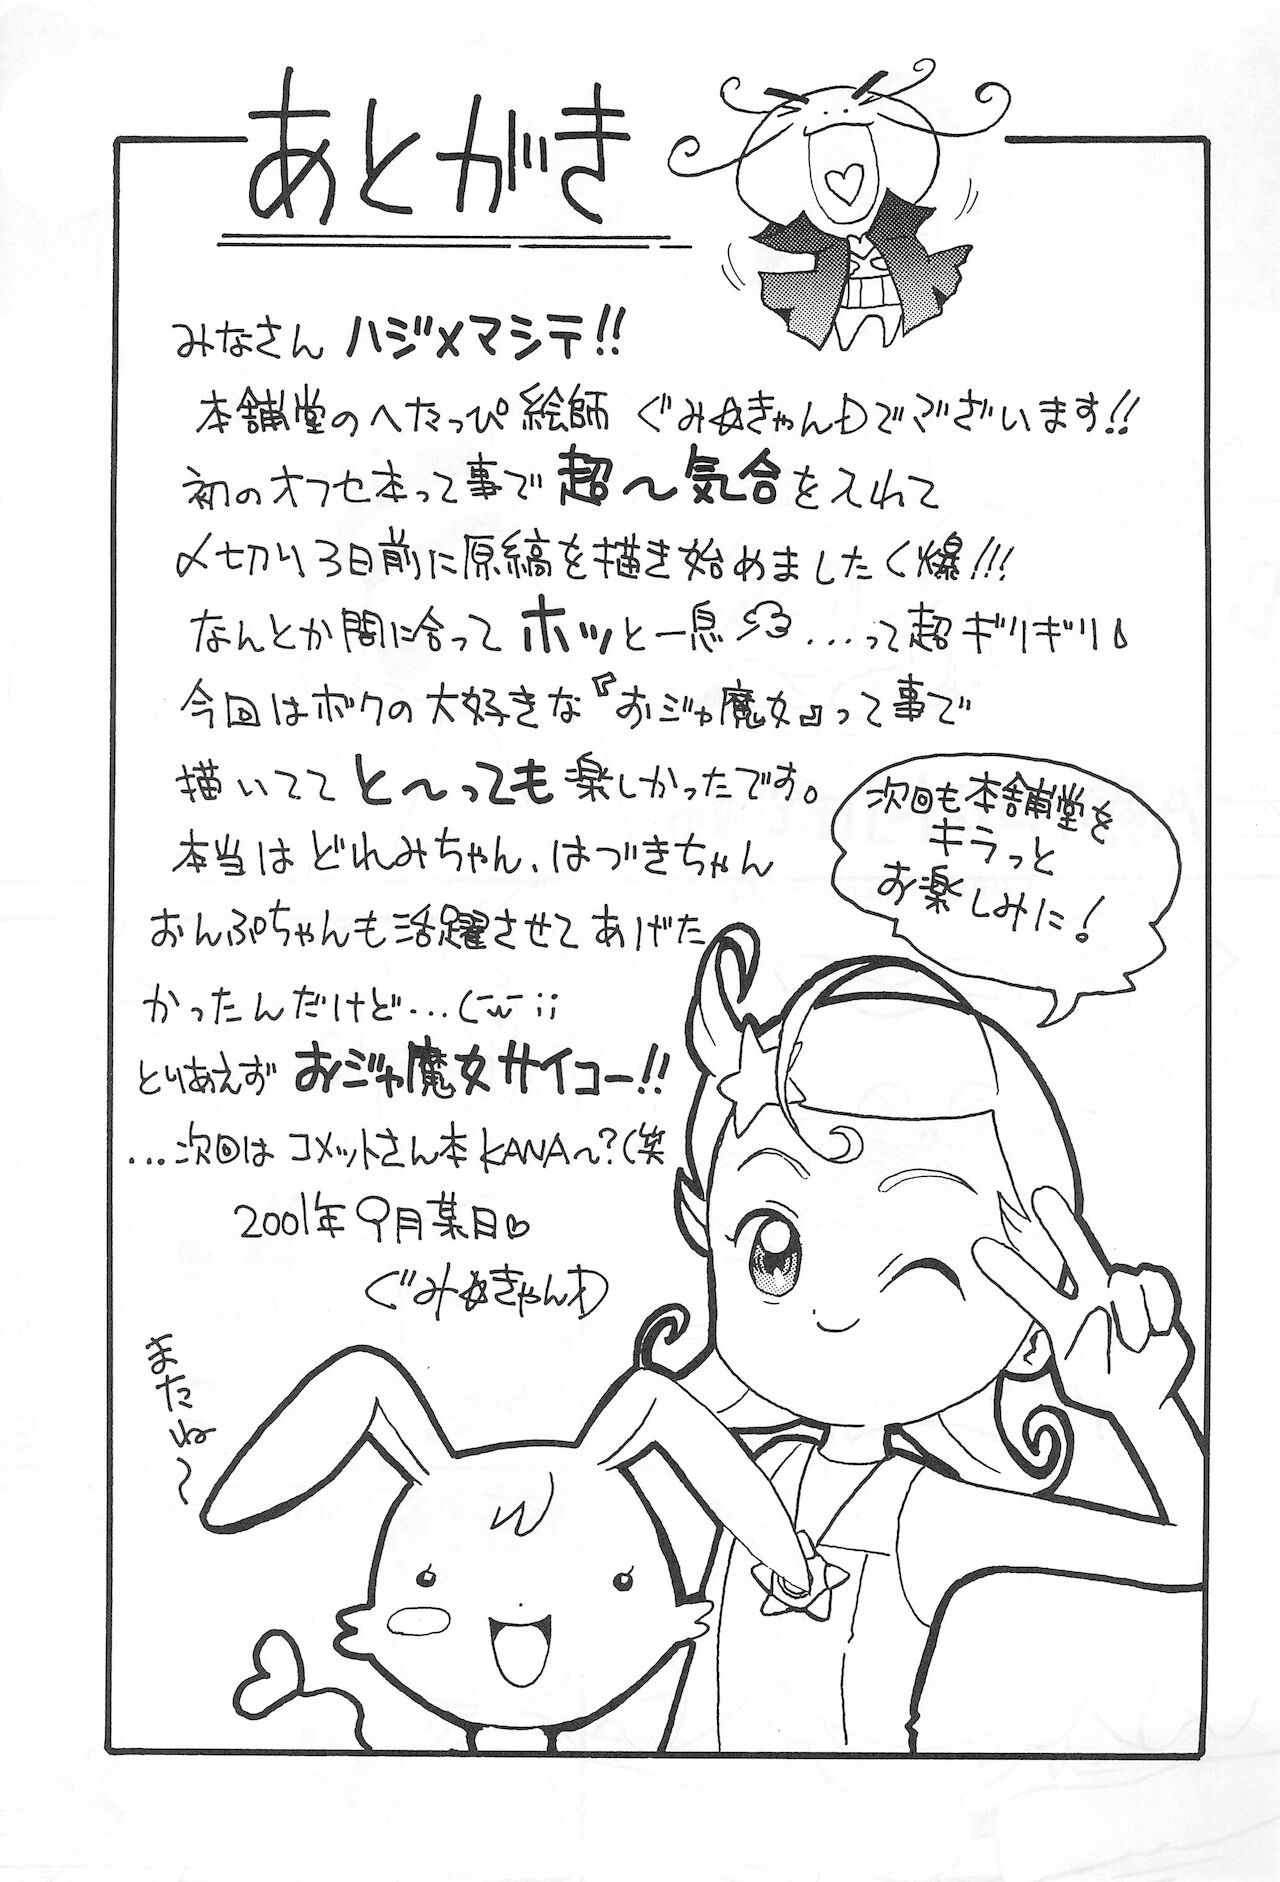 あとがき
みなさん ハジメマシテ!!
本舗堂のへたっぴ絵師 ぐみ☆きゃんDでございます!!
初のオフセ本って事で 超〜気合を入れて
〆切り3日前に原稿を描き始めました(爆!!!
なんとか間に合って ホッと一息 ...って超ギリギリ
今回はボクの大好きな『おジャ魔女』って事で
描いてて と〜っても 楽しかったです。
本当は どれみちゃん、はづきちゃん
おんぷちゃんも活躍させてあげた
かったんだけど...(-w-;;
とりあえず おジャ魔女サイコー!!
...次回は コメットさん本KANA〜?(笑
2001年9月某日♡
ぐみ☆きゃんD
次回も本舗堂を
キラっと
お楽しみに!
またね〜